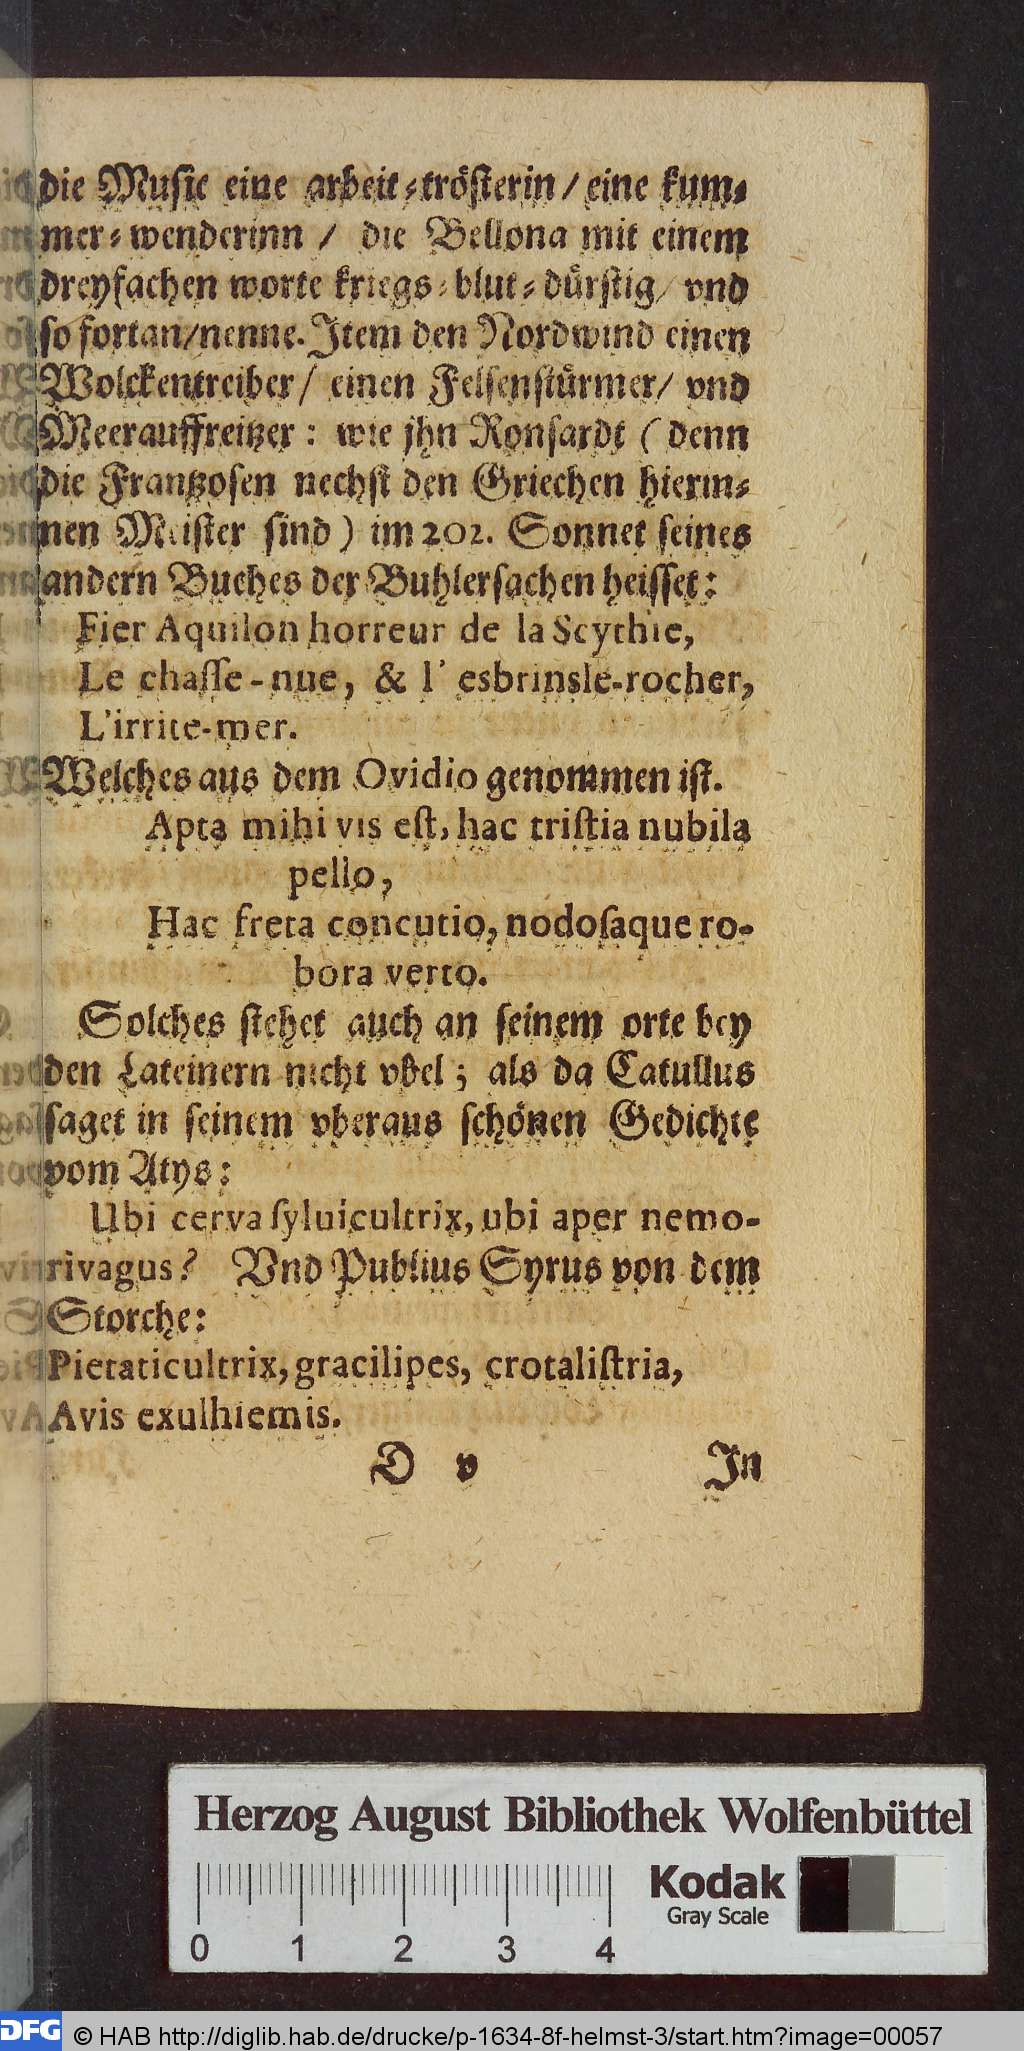 die Music eine arbeit-trösterin / eine kum-
mer-wenderinn / die Bellona mit einem
dreyfachen worte kriegs-blut-dürstig / vnd
so fortan/nenne. Item den Nordwind einen
Wolckentreiber / einen Felsenstürmer / vnd
Meerauffreitzer : wie jhn Ronsardt (denn
die Frantzosen nechst den Griechen hierin-
nen Meister sind) im 202. Sonnet seines
andern Buches der Buhlersachen heisset:
Fier Aquilon horreur de la Scythie,
Le chaſſe-nue, & l' esbrinsle-rocher,
L'irrite-mer.
Welches aus dem Ovidio genommen ist.
Apta mihi vis eſt, hac triſtia nubila
pello,
Hac freta concutio, nodoſaque ro-
bora verto.
Solches stehet auch an seinem orte bey
den Lateinern nicht vbel ; als da Catullus
saget in seinem vberaus schönen Gedichte
vom Atys:
Ubi cerva ſyluicultrix, ubi aper nemo-
rivagus? Vnd Publius Syrus von dem
Storche:
Pietaticultrix, gracilipes, crotaliſtria,
Avis exulhiemis.
D v In
Herzog August Bibliothek Wolfenbüttel
Kodak
Gray Scale
0 1 2 3 4
DFG © HAB http://diglib.hab.de/drucke/p-1634-8f-helmst-3/start.htm?image=00057